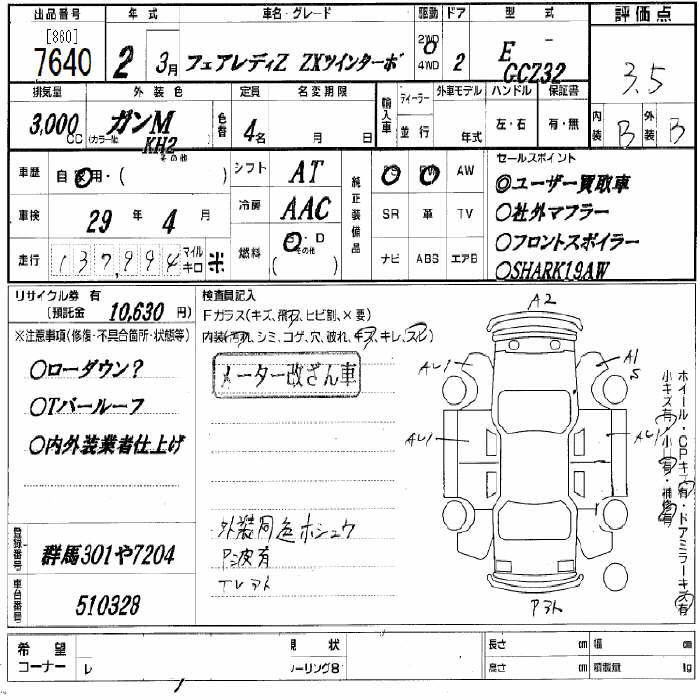 出品番号 年式 車名・グレード 駆動 ドア 型式 評価点
[860]
7640 2 3月 フェアレディZ ZXツインターボ 2WD 4WD 2 E - GCZ32 3.5
排気量 外装色 色替 定員 名変期限 輸入車 ディーラー 外車モデル ハンドル 保証書 内装 外装
3,000 CC ガンM (カラーNo KH2 4名 月 日 並行 年式 左・右 有・無 B B
車歴 自家用・( その他 ) シフト AT 純正装備品 PS PW AW セールスポイント
◎ユーザー買取車
車検 29年 4月 冷房 AAC SR 革 TV ○社外マフラー
○フロントスポイラー
走行 137,994 マイル キロ ※ 燃料 G・D その他 ( ) ナビ ABS エアB ○SHARK19AW
リサイクル券 有
[預託金 10,630 円]
※注意事項(修復・不具合箇所・状態等)
○ローダウン?
○Tバールーフ
○内外装業者仕上げ
検査員記入
Fガラス(キズ、飛石、ヒビ割、×要)
内装(汚れ、シミ、コゲ、穴、破れ、キズ、キレ、スレ)
メーター改ざん車
外装同色ホシュウ
P波有
A2
AU1
A1
S
AU1
AU1
ホイール・CPキズ有・ドアミラーキズ有
小キズ有・小凹有・補修有
登録番号 群馬301や7204
車台番号 510328
希望コーナー レ 現状 ーリング8 長さ cm 幅 cm
高さ cm 積載量 kg